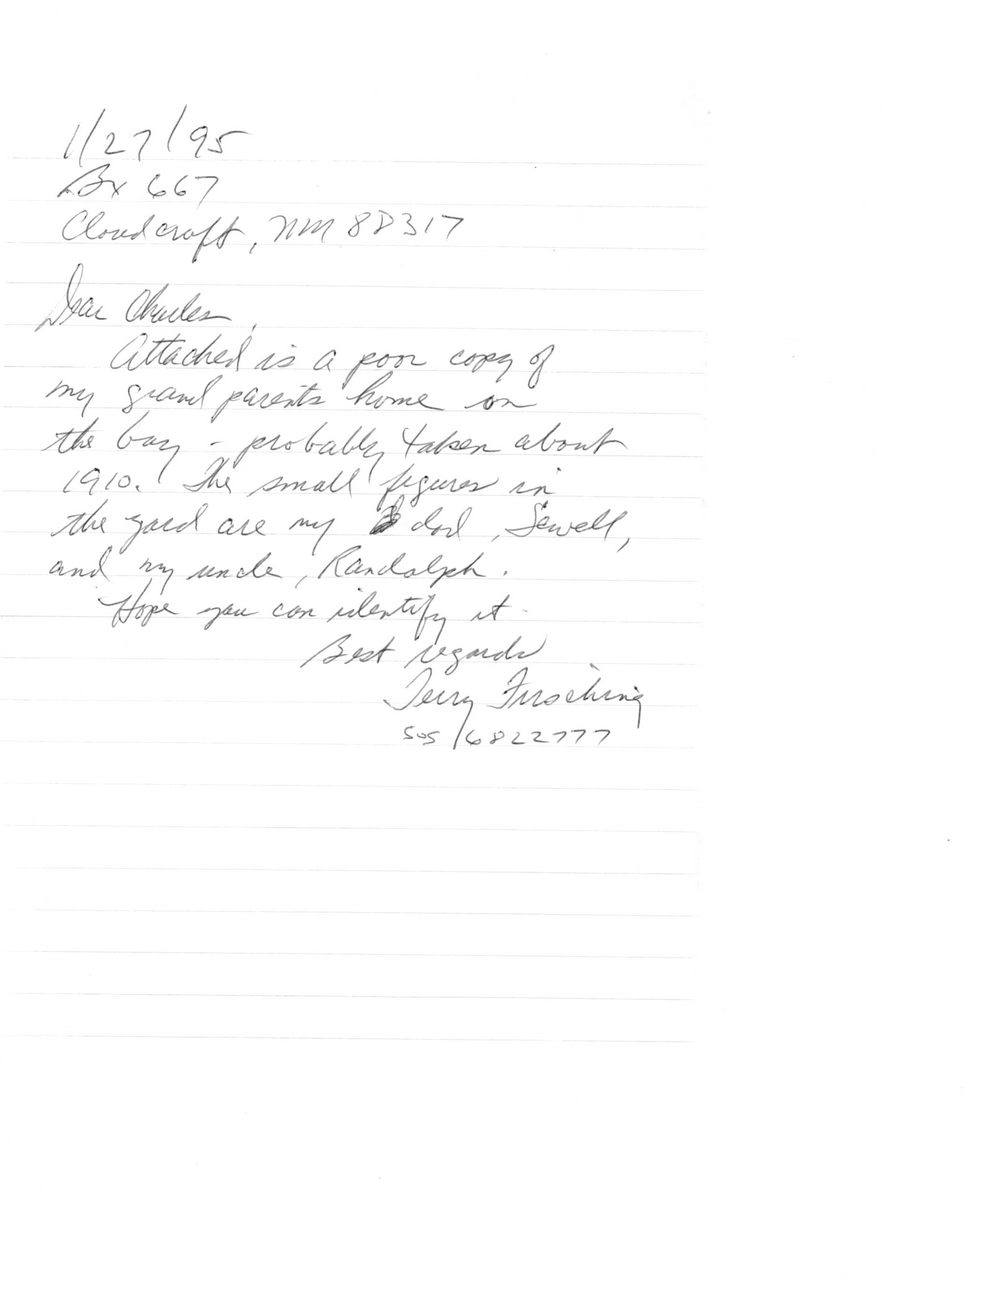 1/27/95
Bx 667
Cloudcroft, NM 88317
Dear Charles,
Attached is a poor copy of
my grand parents home on
the bay - probably taken about
1910. The small figures in
the yard are my dad, Sewell,
and my uncle, Randolph.
Hope you can identify it.
Best regards
Terry Firsching
505/6822777